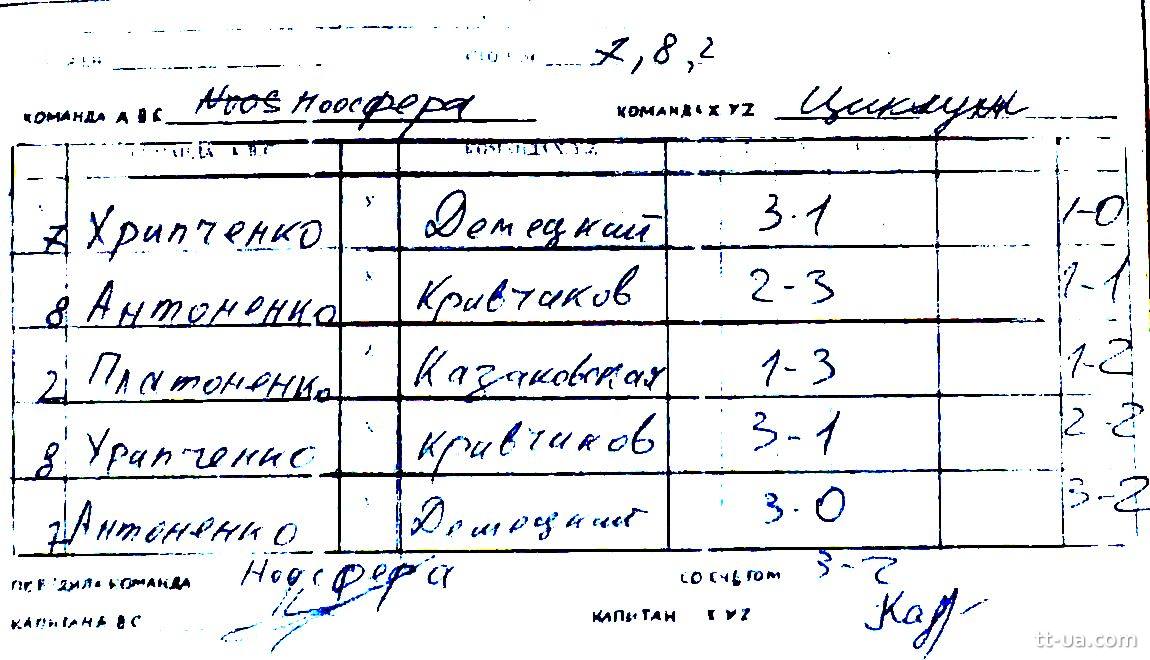 7, 8, 2
КОМАНДА А В С Ноосфера КОМАНДА X Y Z
КОМАНДА X Y Z
7 Хрипченко 3-1 1-0
8 Антоненко Кривчиков 2-3 1-1
2 Платоненко Казаковская 1-3 1-2
8 Хрипченко Кривчиков 3-1 2-2
7 Антоненко 3-0 3-2
КОМАНДА Ноосфера СО СЧЕТОМ 3-2
КАПИТАН А В С КАПИТАН X Y Z
tt-ua.com